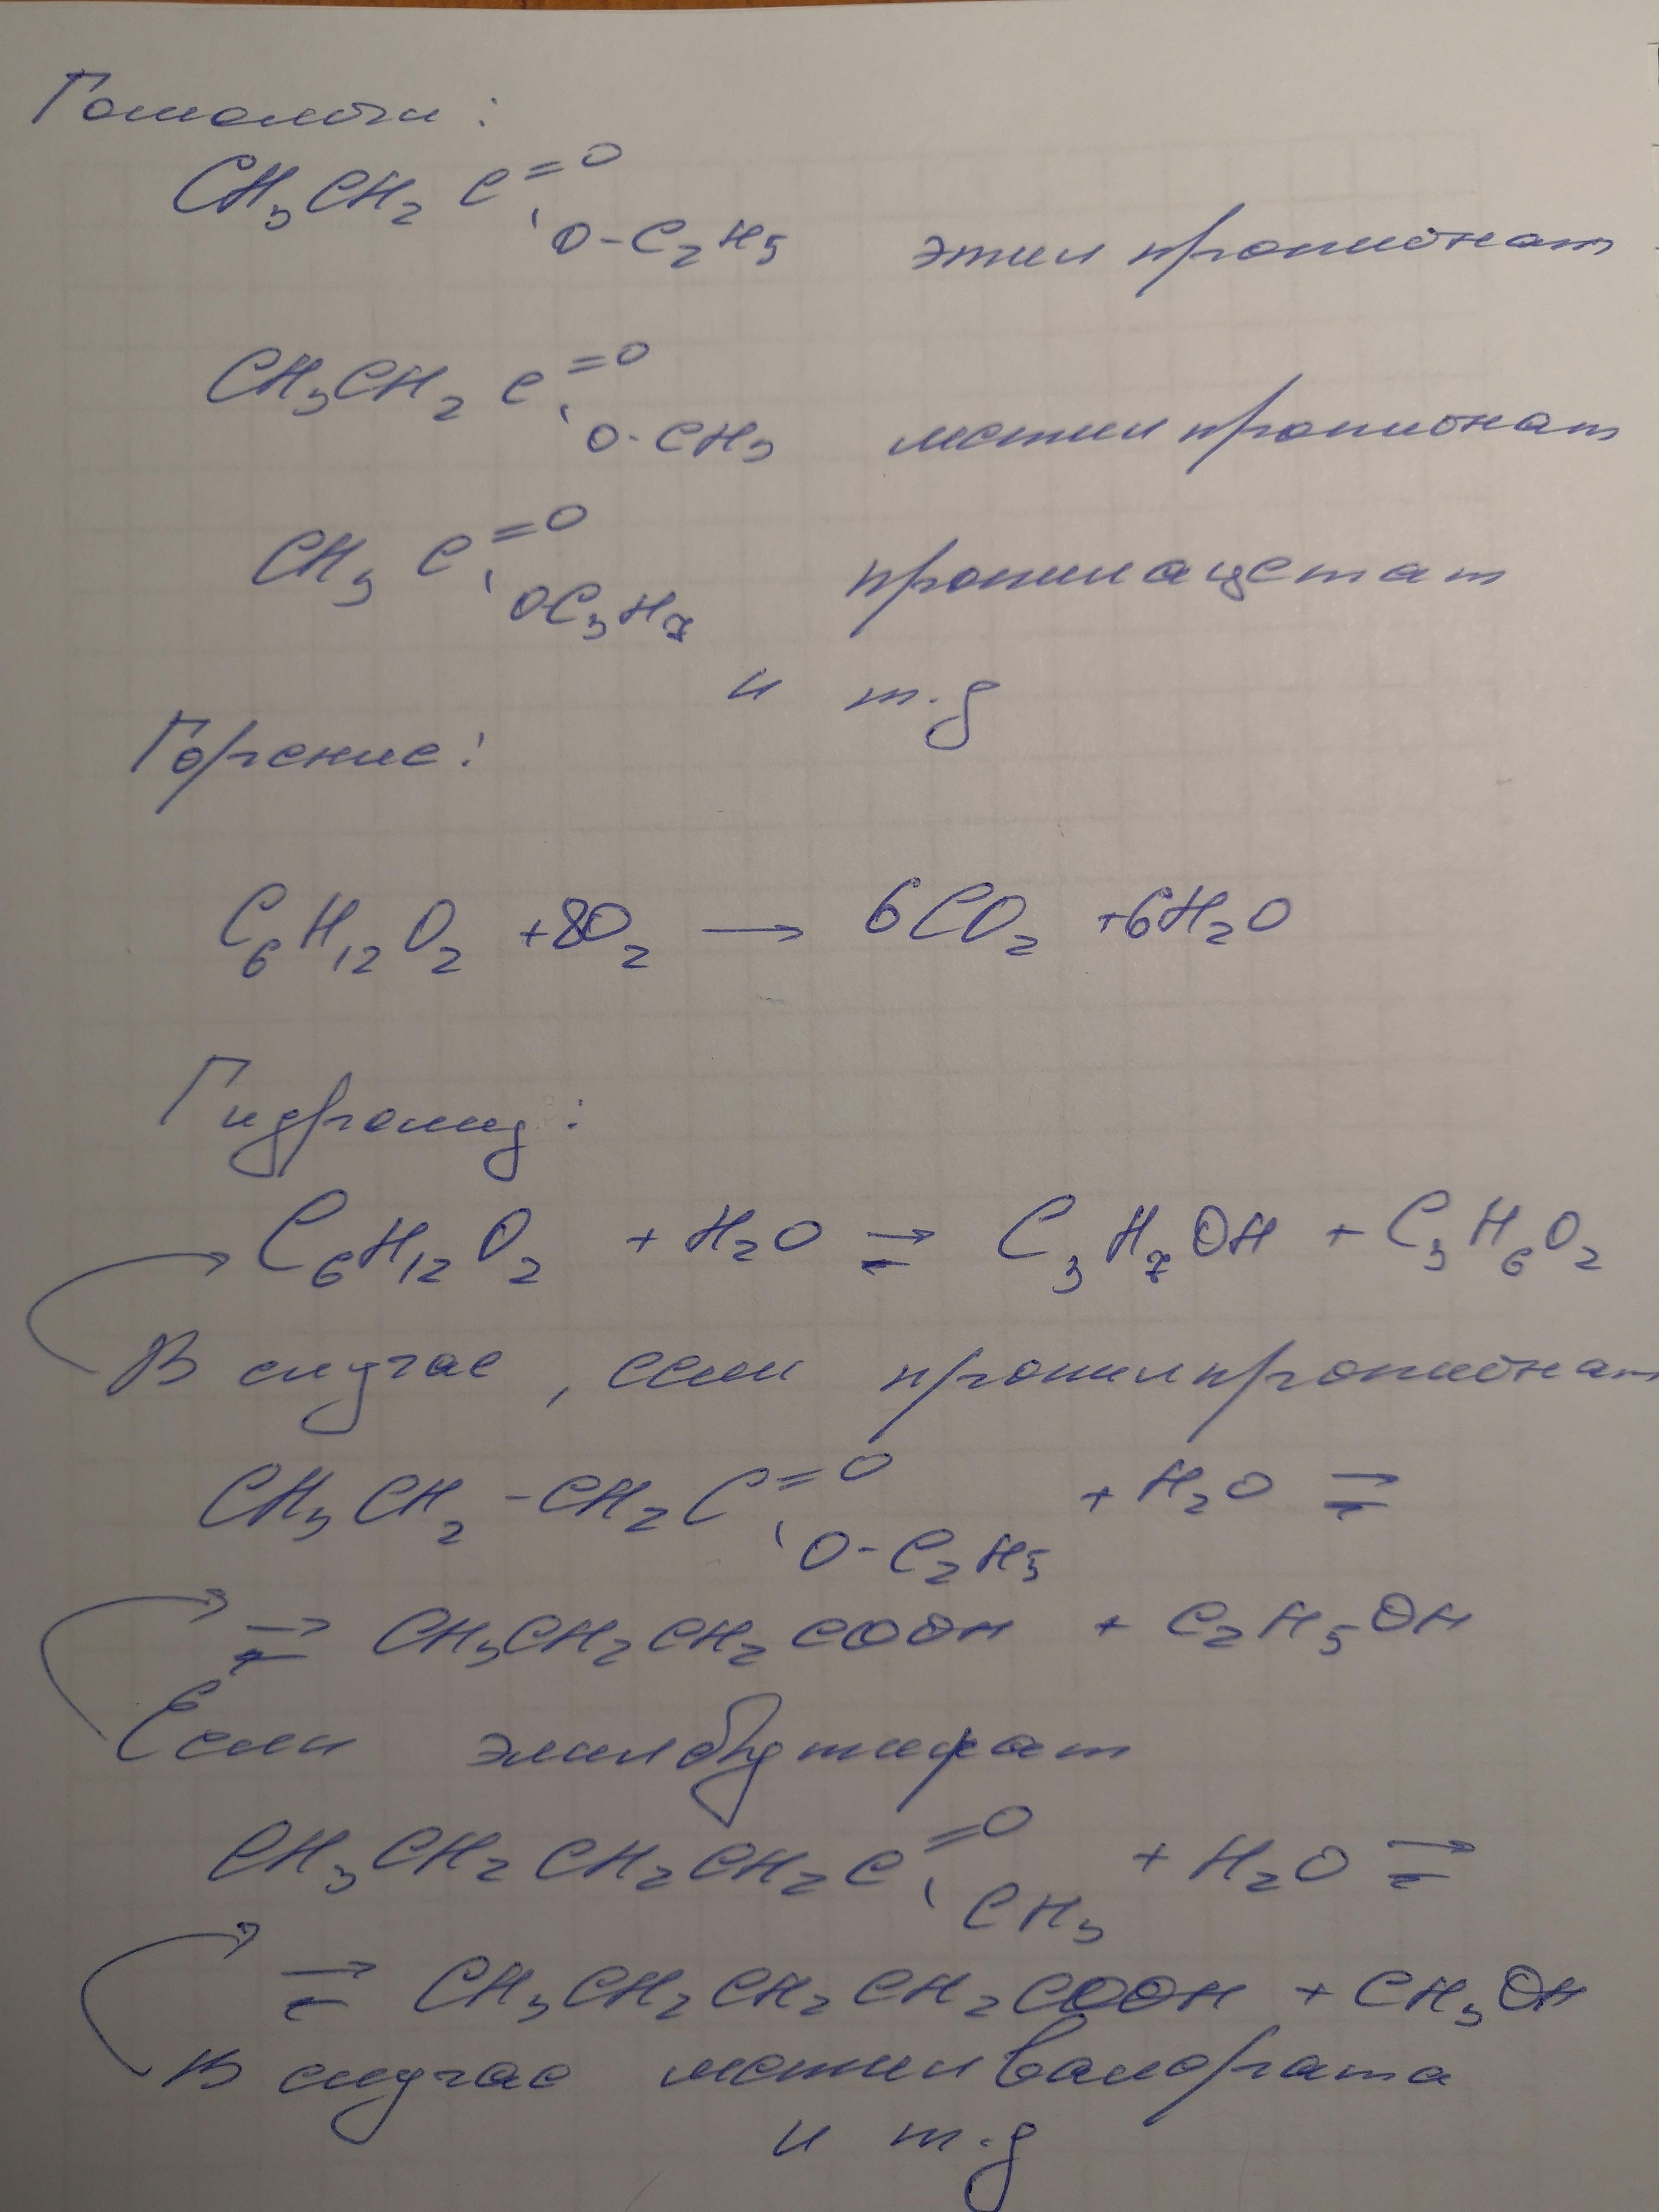 Гомологи:
CH3CH2 C=O
O-C2H5 этилпропионат
CH3CH2 C=O
O-CH3 метилпропионат
CH3 C=O
OC3H7 пропилацетат
и т.д
Горение:
C6H12O2 +8O2 → 6CO2 +6H2O
Гидролиз:
C6H12O2 + H2O ⇄ C3H7OH + C3H6O2
В случае, если пропилпропионат
CH3CH2-CH2C=O + H2O ⇄
O-C2H5
⇄ CH3CH2CH2COOH + C2H5OH
Если этилбутират
CH3CH2CH2CH2C=O + H2O ⇄
CH3
⇄ CH3CH2CH2CH2COOH + CH3OH
В случае метилвалерата
и т.д